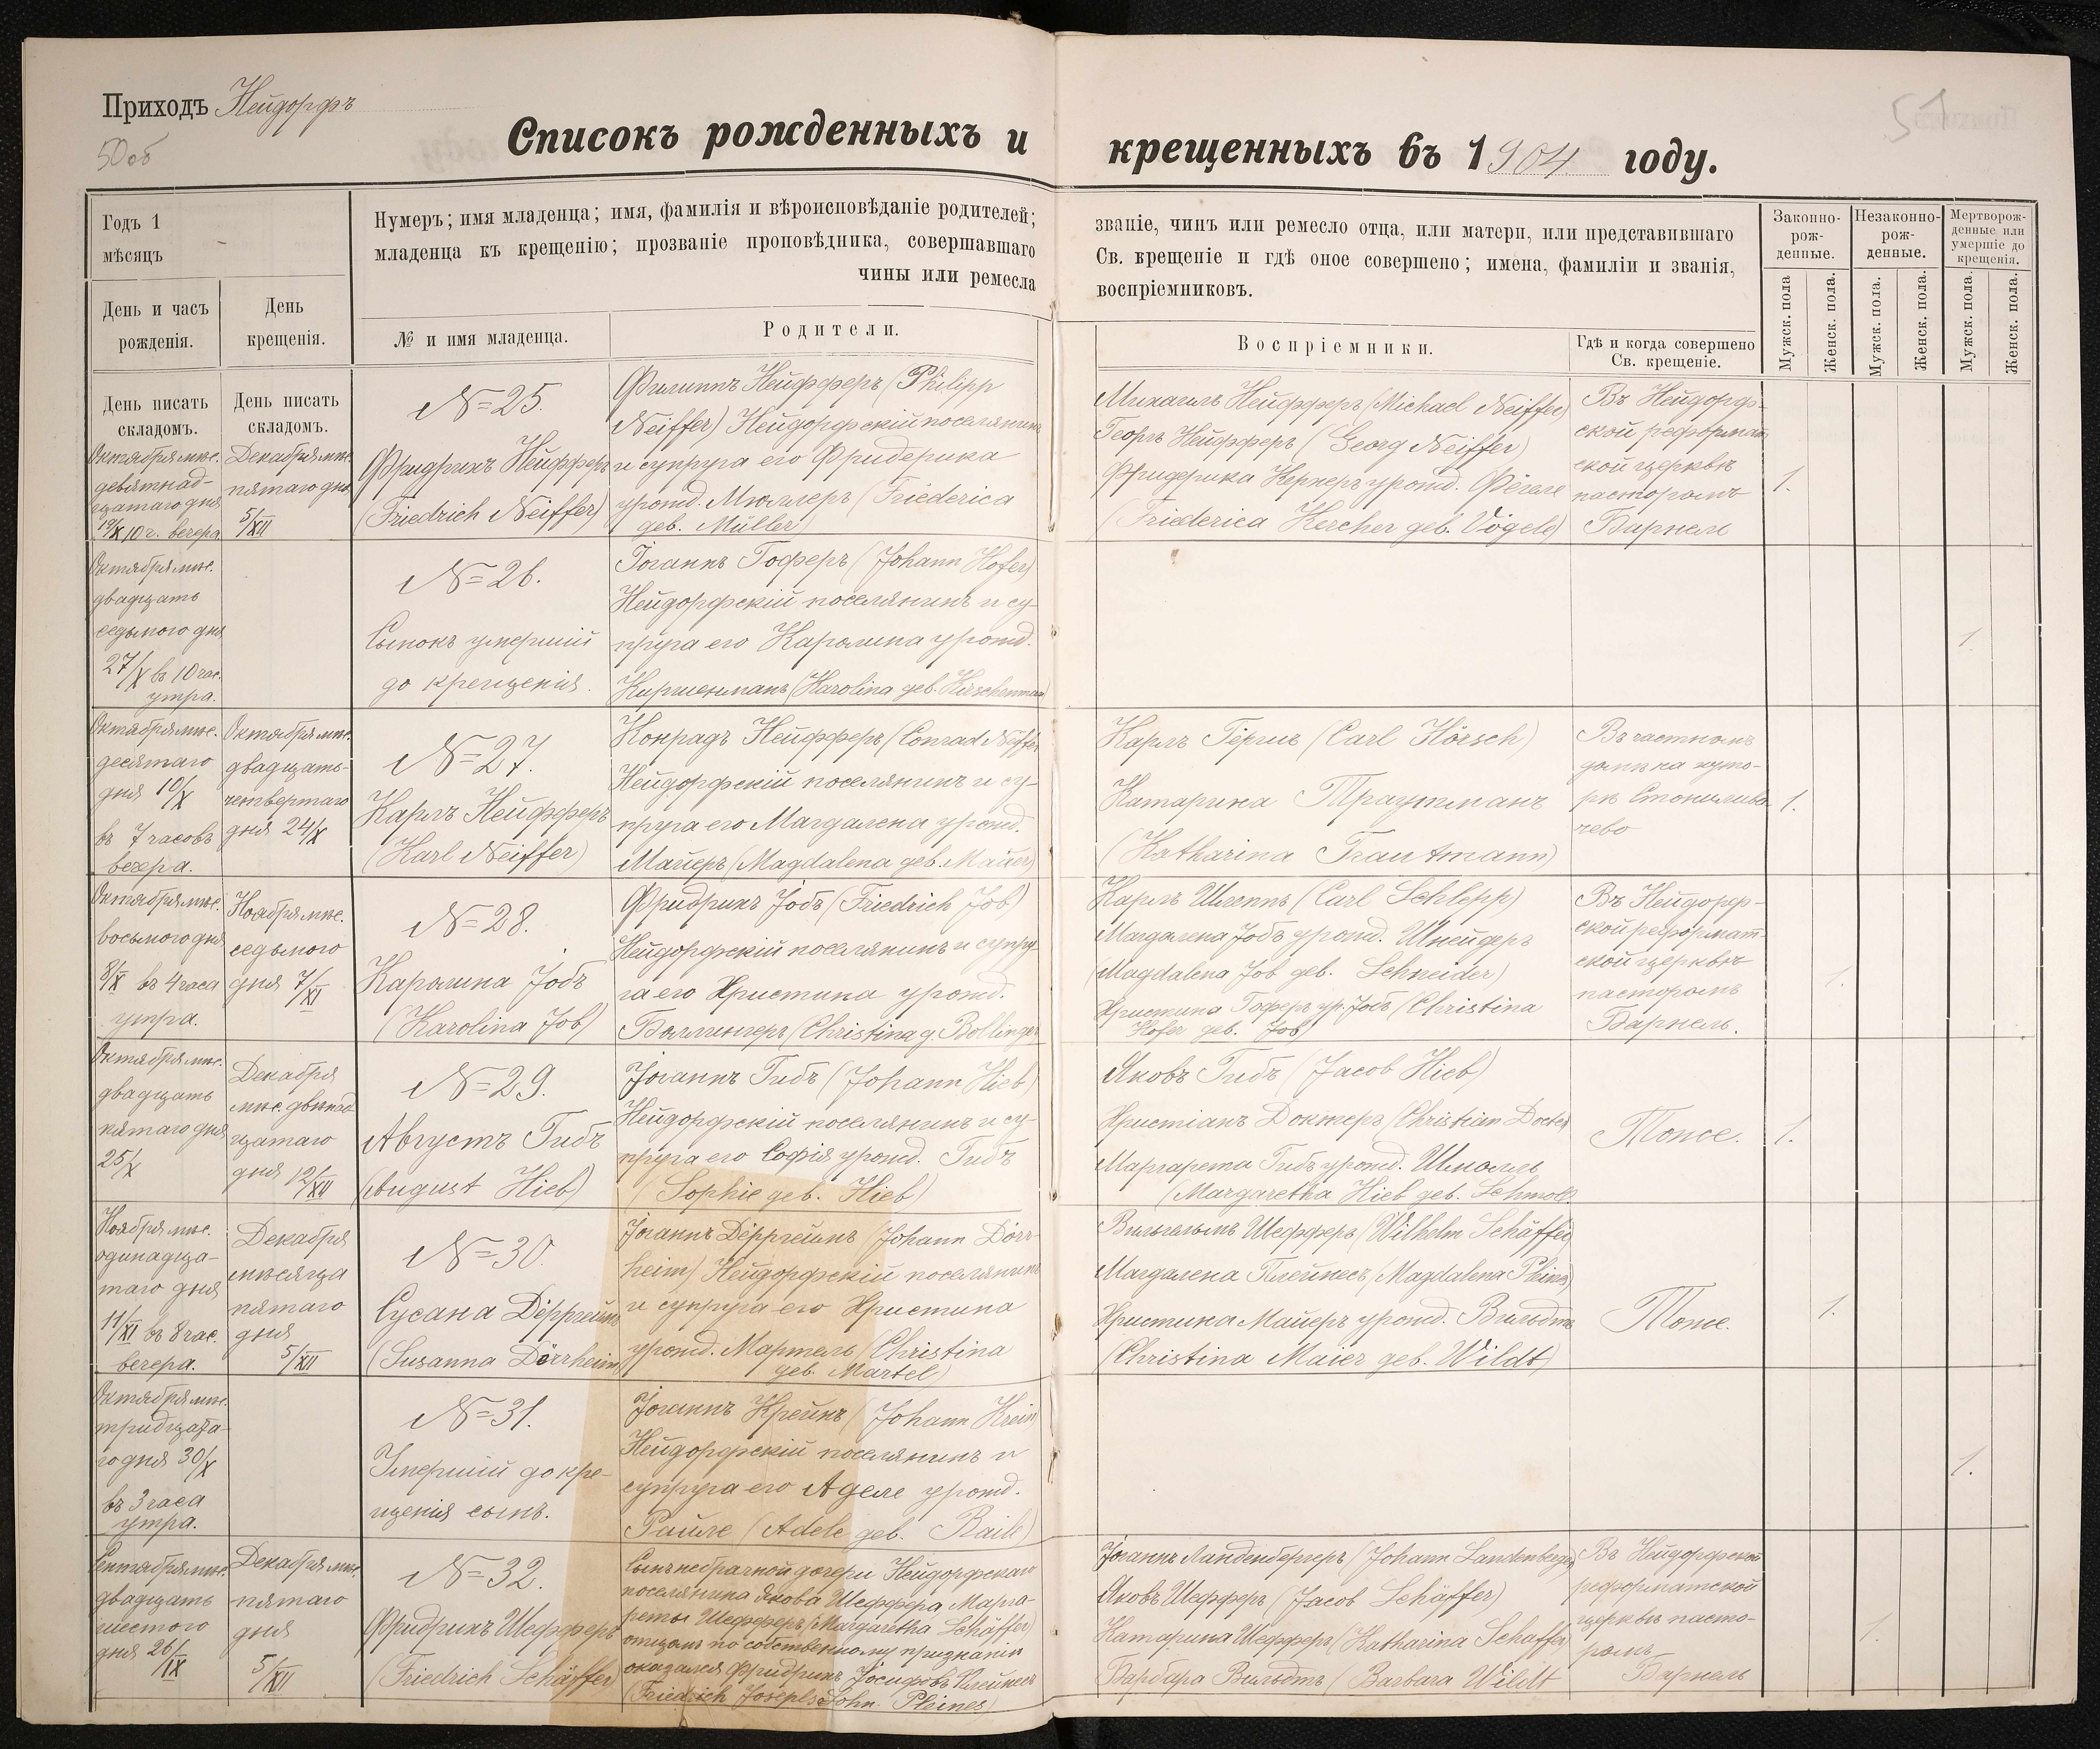 Приходъ Нейдорфъ
50об
51
Списокъ рожденныхъ и крещенныхъ въ 1904 году.
Годъ 1
мѣсяцъ
Нумеръ; имя младенца; имя, фамилія и вѣроисповѣданіе родителей;
младенца къ крещенію; прозваніе проповѣдника, совершавшаго
чины или ремесла
званіе, чинъ или ремесло отца, или матери, или представившаго
Св. крещеніе и гдѣ оное совершено; имена, фамиліи и званія,
воспріемниковъ.
Законно-
рож-
денные.
Незаконно-
рож-
денные.
Мертворож-
денные или
умершіе до
крещенія.
День и часъ
рожденія.
День
крещенія.
№ и имя младенца.
Родители.
Воспріемники.
Гдѣ и когда совершено
Св. крещеніе.
Мужск. пола
Женск. пола.
Мужск. пола.
Женск. пола.
Мужск. пола.
Женск. пола.
День писать
складомъ.
День писать
складомъ.
Октября мѣс.
девятнад-
цатаго дня
19/X 10 ч. вечера
Декабря мѣс.
пятаго дня
5/XII
№ 25.
Фридрихъ Нейфферъ
(Friedrich Neiffer)
Филиппъ Нейфферъ (Philipp
Neiffer) Нейдорфскій поселянинъ
и супруга его Фридерика
урожд. Мюллеръ (Friederica
geb. Müller)
Михаилъ Нейфферъ (Michael Neiffer)
Георгъ Нейфферъ (Georg Neiffer)
Фридерика Керхеръ урожд. Фёгеле
(Friederica Kercher geb. Vögele)
Въ Нейдорф-
ской реформат-
ской церкви
пасторомъ
Барнель
1.
Октября мѣс.
двадцать
седьмого дня
27/X въ 10 час.
утра.
№ 26.
Сынокъ умершій
до крещенія.
Іоганнъ Гоферъ (Johann Hofer)
Нейдорфскій поселянинъ и су-
пруга его Каролина урожд.
Киршенманъ (Karolina geb. Kirschenman)
1.
Октября мѣс.
десятаго
дня 10/X
въ 7 часовъ
вечера.
Октября мѣс.
двадцать-
четвертаго
дня 24/X
№ 27.
Карлъ Нейфферъ
(Karl Neiffer)
Конрадъ Нейфферъ (Conrad Neiffer)
Нейдорфскій поселянинъ и су-
пруга его Магдалена урожд.
Майеръ (Magdalena geb. Maier)
Карлъ Гёршъ (Carl Hörsch)
Катарина Траутманъ
(Katharina Trautmann)
Въ частномъ
домѣ на хуто-
рѣ
чево
1.
Октября мѣс.
восьмого дня
8/X въ 4 часа
утра.
Ноября мѣс.
седьмого
дня 7/XI
№ 28.
Каролина Јобъ
(Karolina Job)
Фридрихъ Јобъ (Friedrich Job)
Нейдорфскій поселянинъ и супру-
га его Христина урожд.
Боллингеръ (Christina g. Bollinger
Карлъ Шлеппъ (Carl Schlepp)
Магдалена Јобъ урожд. Шнейдеръ
(Magdalena Job geb. Schneider)
Христина Гоферъ ур. Јобъ (Christina
Hofer geb. Job)
Въ Нейдорф-
ской реформат-
ской церкви
пасторомъ
Барнель.
1.
Октября мѣс.
двадцать
пятаго дня
25/X
Декабря
мѣс. двѣнад-
цатаго
дня 12/XII
№ 29.
Августъ Гибъ
(August Hieb)
Јоганнъ Гибъ (Johann Hieb)
Нейдорфскій поселянинъ и су-
пруга его Софія урожд. Гибъ
(Sophie geb. Hieb)
Яковъ Гибъ (Jacob Hieb)
Христіанъ Доктеръ (Christian Docter)
Маргарета Гибъ урожд. Шмолль
(Margaretha Hieb geb. Schmoll
Тоже.
1.
Ноября мѣс.
одинадца-
таго дня
11/XI въ 8 час.
вечера.
Декабря
мѣсяца
пятаго
дня
5/XII
№ 30.
Сусана Дёрргеймъ
(Susanna Dörrheim)
Јоганнъ Дёрргеймъ (Johann Dörr-
heim) Нейдорфскій поселянинъ
и супруга его Христина
урожд. Мартель (Christina
geb. Martel)
Вильгельмъ Шефферъ (Wilhelm Schäffer)
Магдалена Плейнесъ (Magdalena Pleines)
Христина Майеръ урожд. Вильдтъ
(Christina Maier geb. Wildt)
Тоже.
1.
Октября мѣс.
тридцата-
го дня 30/X
въ 3 часа
утра.
№ 31.
Умершій до кре-
щенія сынъ.
Јоганнъ Крейнъ (Johann Krein)
Нейдорфскій поселянинъ и
супруга его Аделе урожд.
Райле (Adele geb. Raile)
1.
Сентября мѣс.
двадцать
шестого
дня 26/IX
Декабря мѣс.
пятаго
дня
5/XII
№ 32.
Фридрихъ Шефферъ
(Friedrich Schäffer)
Сынъ небрачной дочери Нейдорфскаго
поселянина Якова Шеффера Марга-
реты Шефферъ (Margaretha Schäffer)
отцомъ по собственному признанію
оказался Фридрихъ Јосифовъ Плейнесъ
(Friedrich Josephs Sohn. Pleines)
Јоганнъ Ланденбергеръ (Johann Landenberger)
Яковъ Шефферъ (Jacob Schäffer)
Катарина Шефферъ (Katharina Schäffer)
Барбара Вильдтъ (Barbara Wildt
Въ Нейдорфской
реформатской
церкви пасто-
ромъ
Барнель
1.